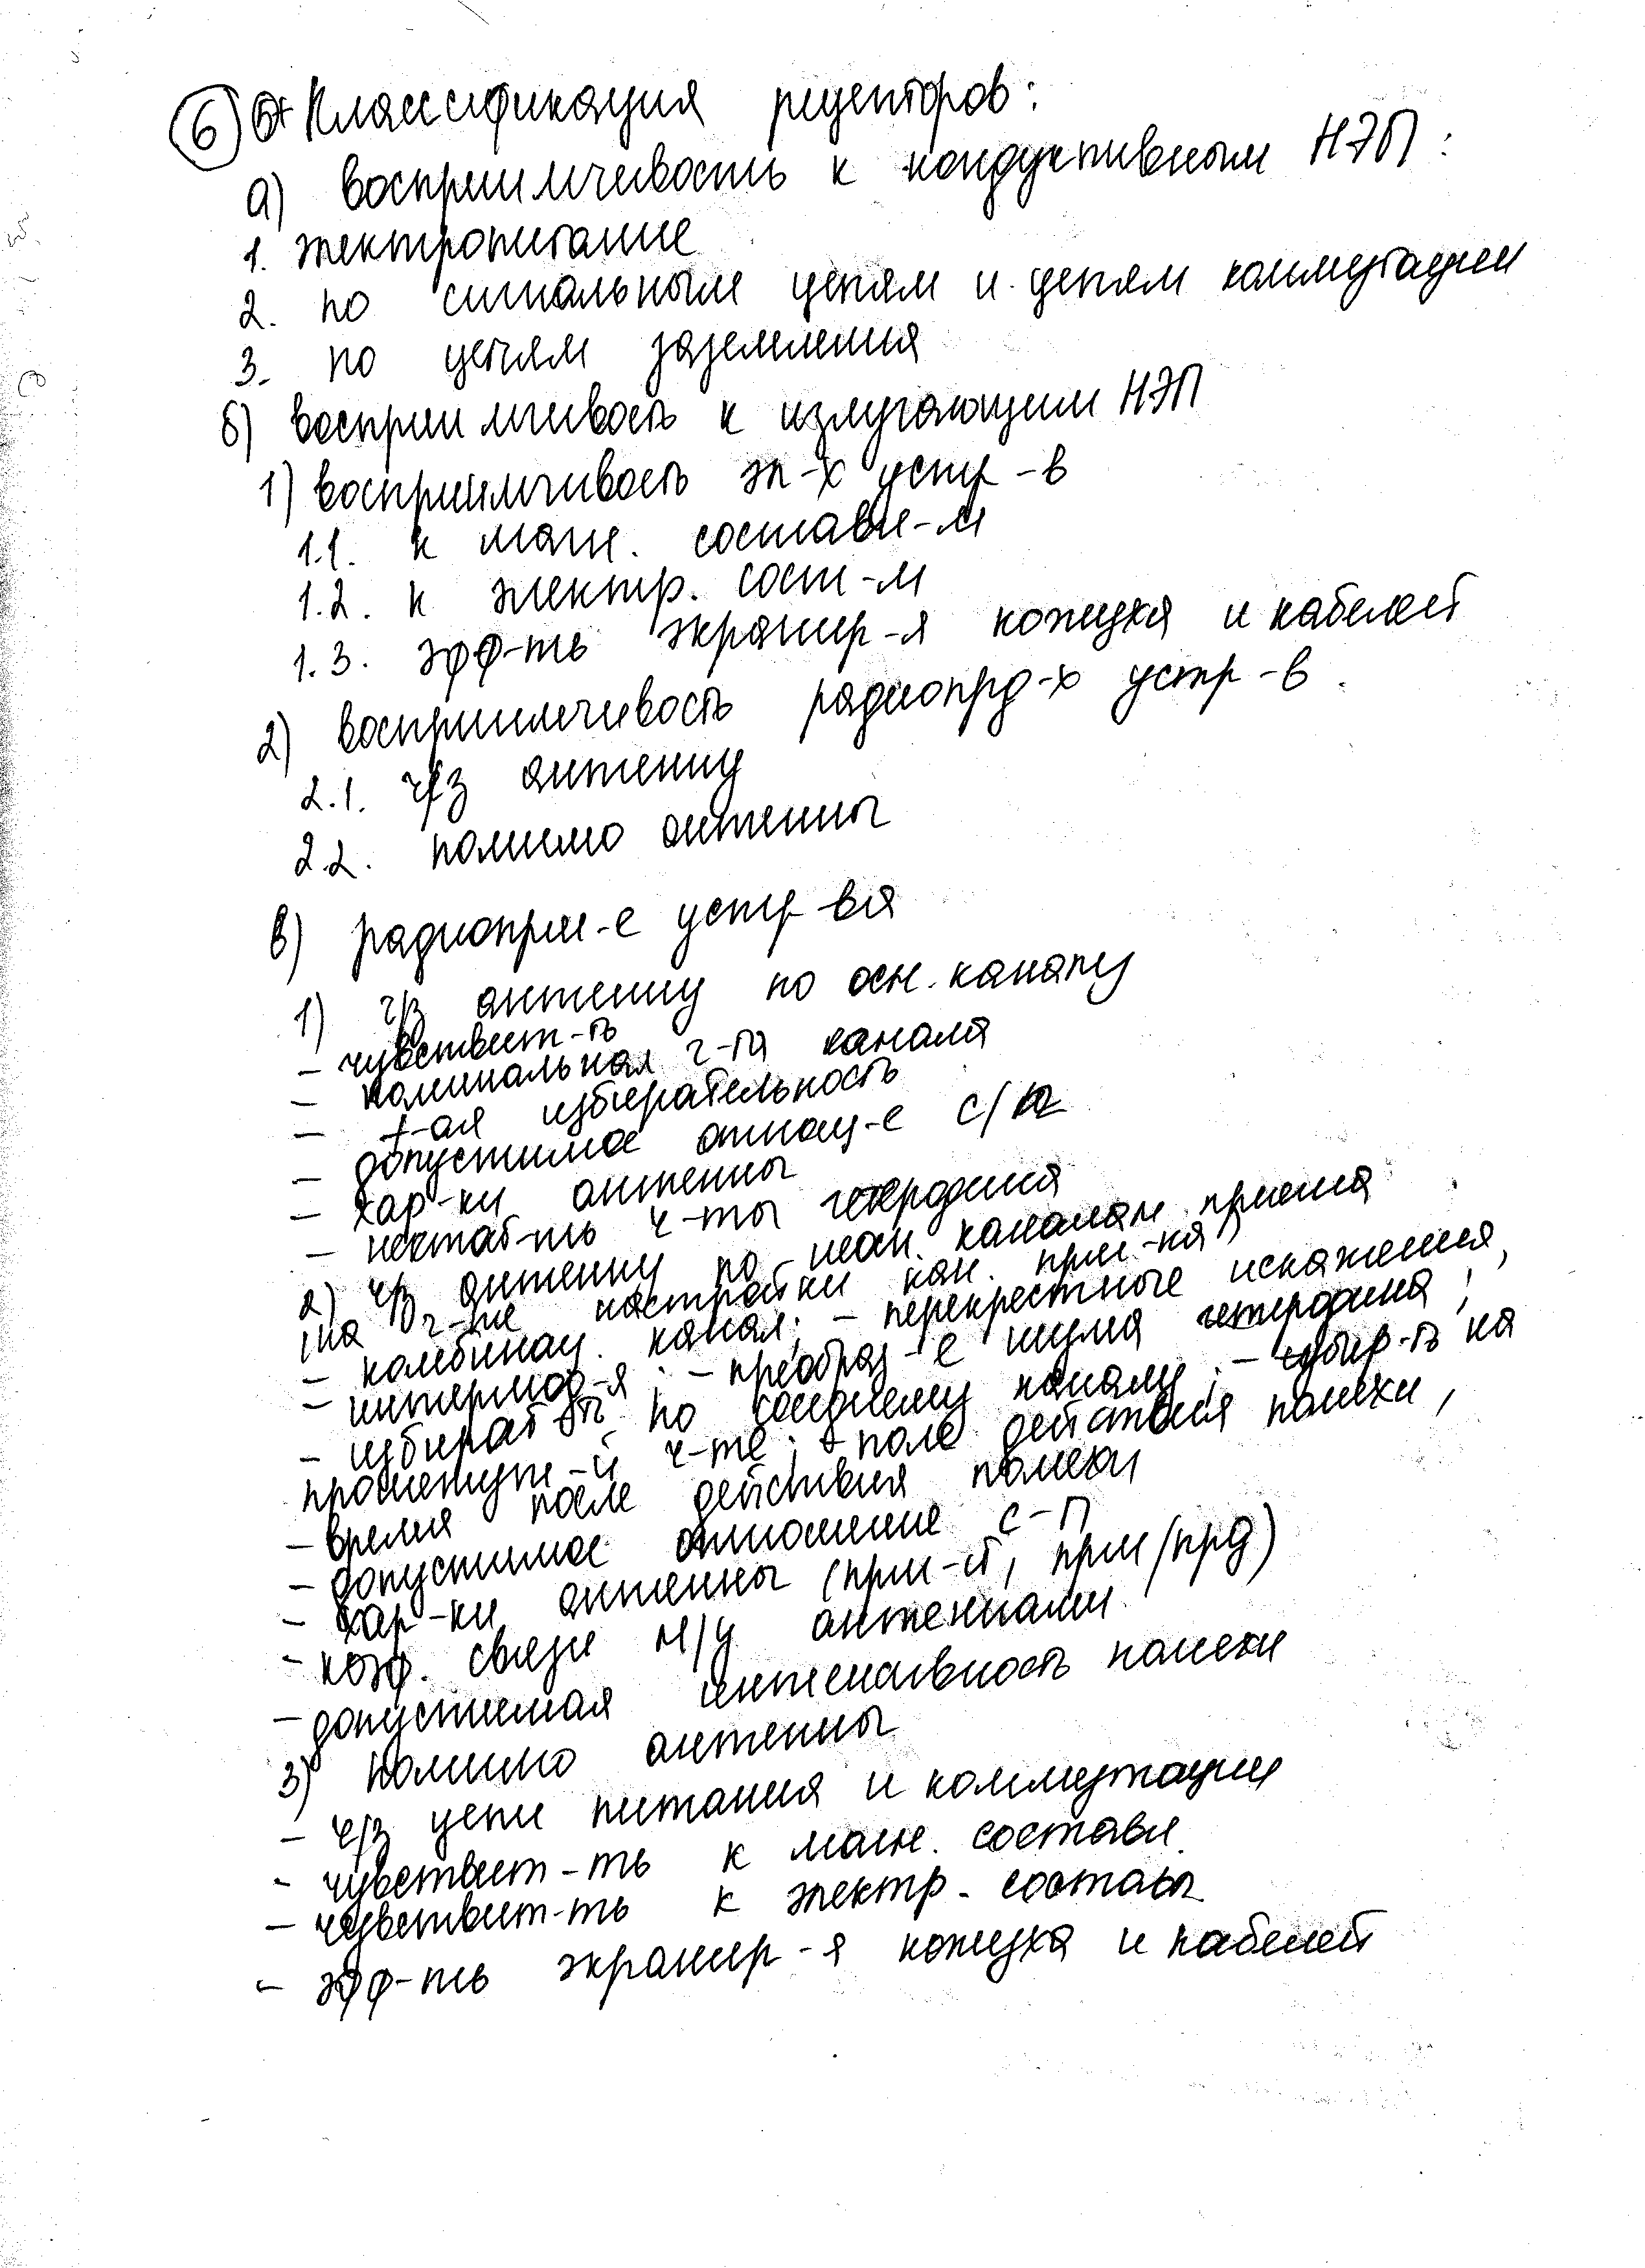 6) Классификация рецепторов:
а) восприимчивость к кондуктивным НЭП:
1. электропитание
2. по сигнальным цепям и цепям коммутации
3. по цепям заземления
б) восприимчивость к излучающим НЭП
1) восприимчивость эл-х устр-в
1.1. к магн. составл-й
1.2. к электр. сост-й
1.3. эфф-ть экранир-я кожуха и кабелей
2) восприимчивость радиопрд-х устр-в.
2.1. ч/з антенну
2.2. помимо антенны
в) радиоприм-е устр-ва
1) ч/з антенну по осн. каналу
- чувствит-ть
- номинальная ч-та канала
- f-ая избирательность
- допустимое отнош-е с/п
- хар-ки антенны
- нестаб-ть ч-ты гетеродина
2) ч/з антенну по неосн. каналам приема
(на ч-те настройки кан. прм-ка)
- комбинац. канал; - перекрестные искажения,
- интермод-я; - преобраз-е шума гетеродина;
- избират-ть по соседнему каналу; - избир-ть на
промежут-й ч-те; + поле действия помехи,
- время после действия помехи
- допустимое отношение с-п
- хар-ки антенны (прм-й, прм/прд)
- коэф. связи м/у антеннами
- допустимая интенсивность помехи
3) помимо антенны
- ч/з цепи питания и коммутации
- чувствит-ть к магн. составл.
- чувствит-ть к электр. составл
- эфф-ть экранир-я кожуха и кабелей